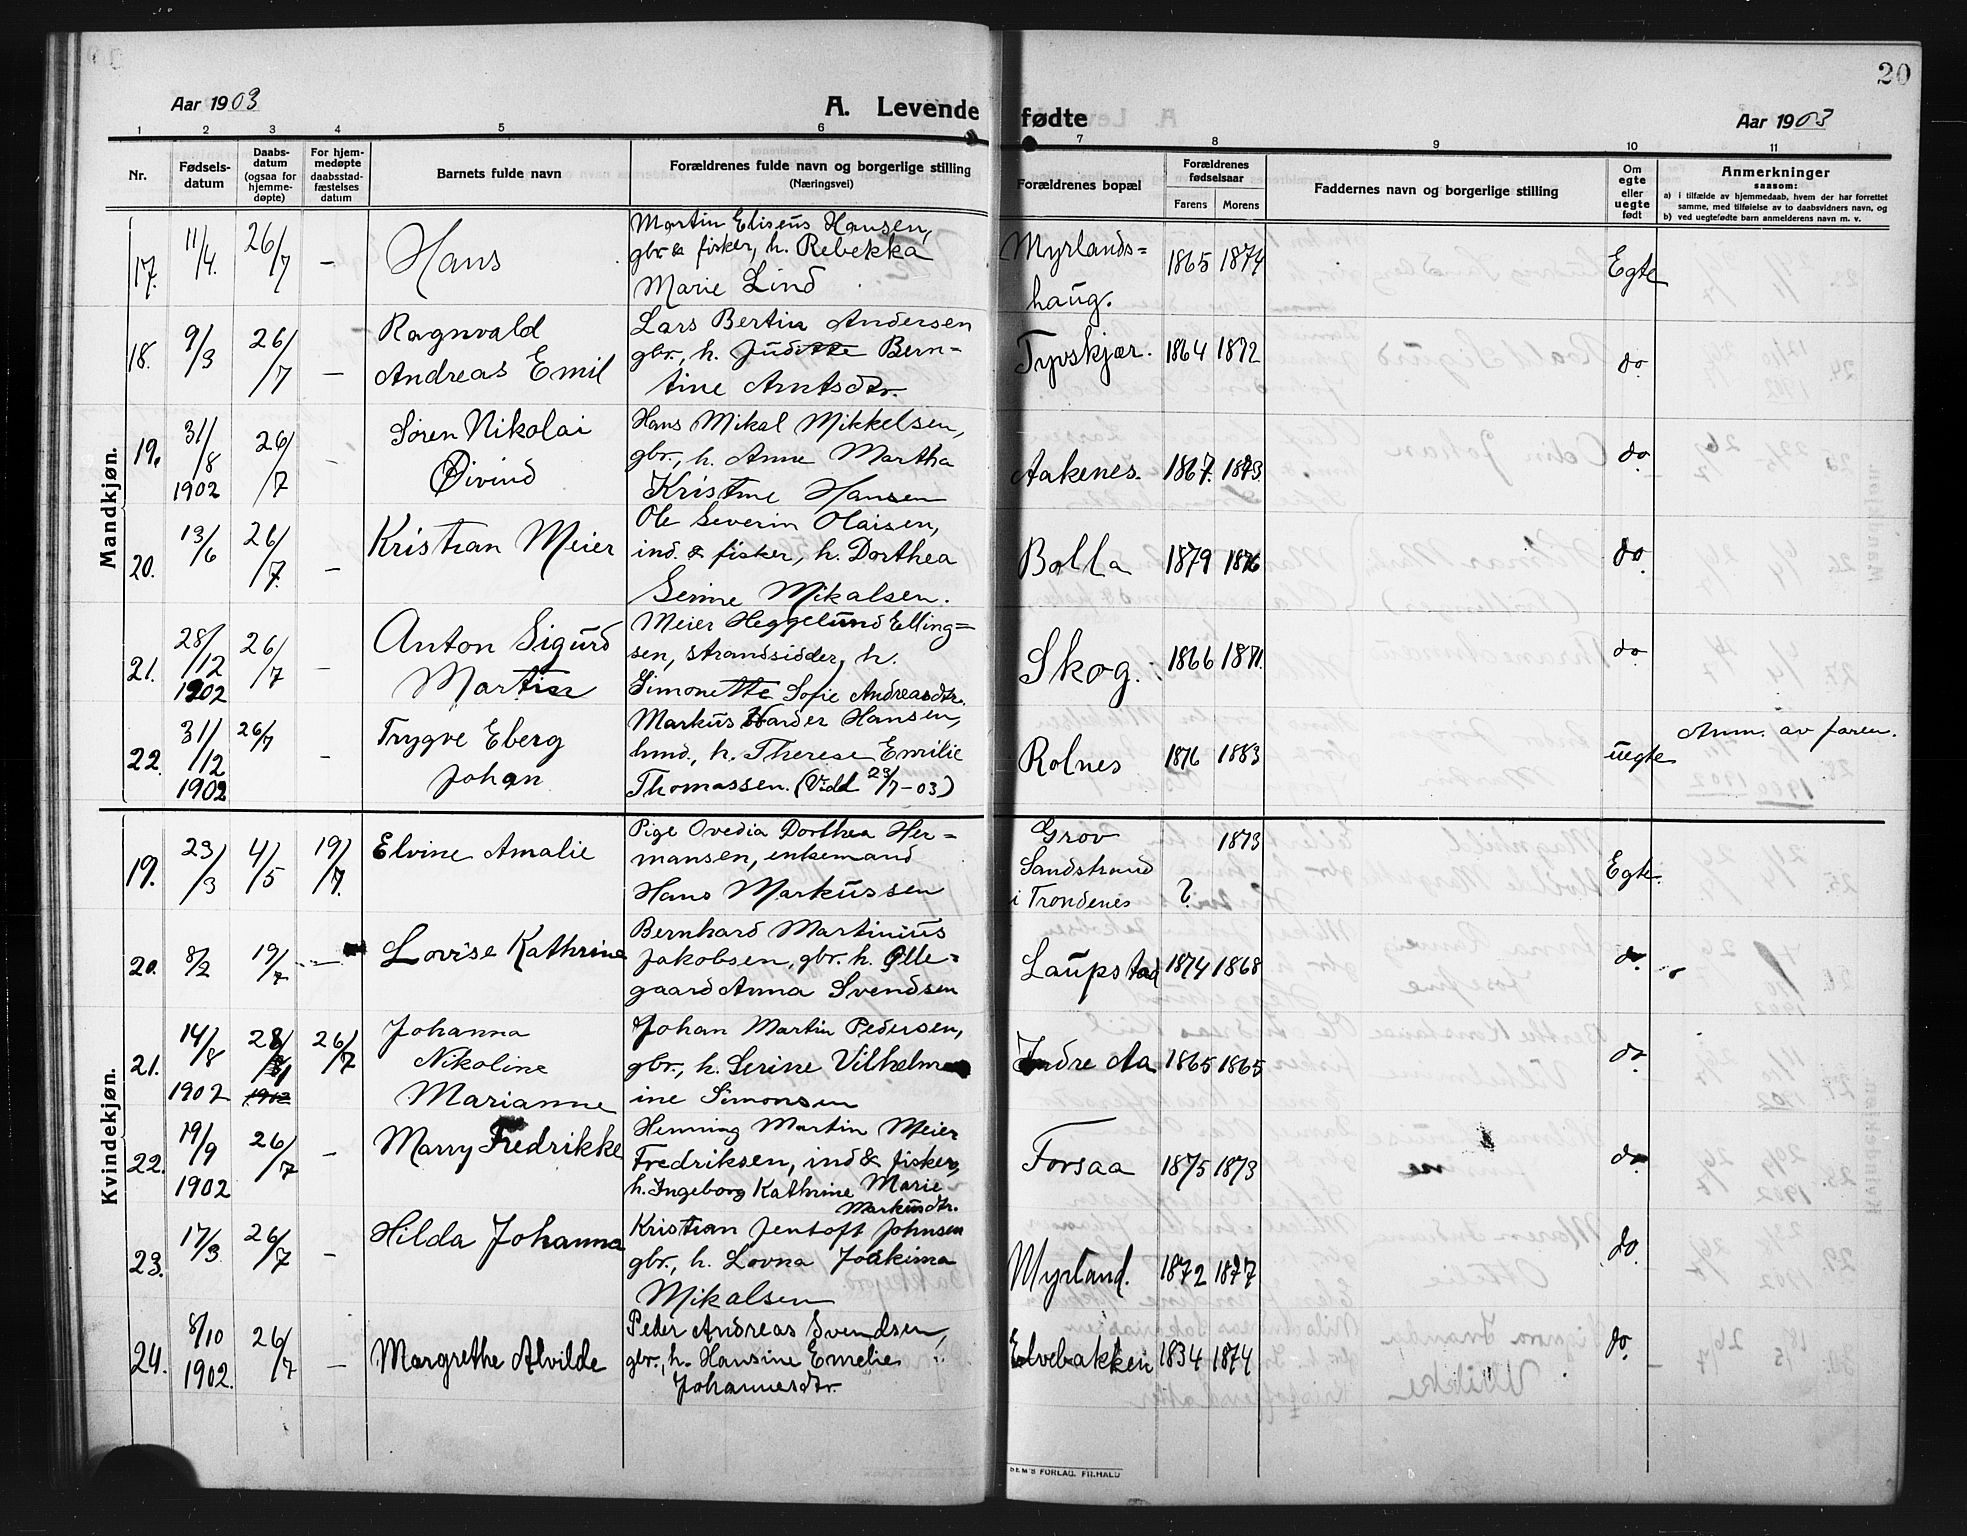 20
Aar 1903
A. Levende fødte
Aar 1903
1 2 3 4 5 6 7 8 9 10 11
Nr. | Fødsels-datum | Daabs-datum (ogsaa for hjemme-døpte) | For hjem-medøpte daabsstad-fæstelses datum | Barnets fulde navn | Forældrenes fulde navn og borgerlige stilling (Næringsvei) | Forældrenes bopæl | Forældrenes fødselsaar Farens Morens | Faddernes navn og borgerlige stilling | Om egte eller uegte født | Anmerkninger saasom: a) i tilfælde av hjemmedaab, hvem der har forrettet samme, med tilføielse av to daabsvidners navn, og b) ved uegtefødte barn anmelderens navn m. v.
Mandkjøn.
17. 11/4. 26/7 – Hans
Martin Eliseus Hansen,
gbr. & fisker, h. Rebekka
Marie Lind
Myrlands=
haug.
1865 1874 Egte
18. 9/3 26/7 – Ragnvald
Andreas Emil
Lars Bertin Andersen
gbr., h. Juditte Bern-
tine Arntsdtr.
Tyvskjær. 1864 1872 do.
19. 31/8 1902 26/7 – Søren Nikolai
Øivind
Hans Mikal Mikkelsen,
gbr., h. Anne Martha
Kristine Hansen
Aakenes. 1867. 1873. do.
20. 13/6 26/7. – Kristian Meier
Ole Severin Olaisen,
ind. & fisker, h. Dorthea
Serine Mikalsen.
Bolla 1879 1876 do.
21. 28/12 1902 26/7 – Anton Sigurd
Martin
Meier Heggelund Elling=
sen, strandsidder, h.
Simonette Sofie Andreasdtr.
Skog. 1866 1871. do.
22. 31/12 1902 26/7 – Trygve Eberg
Johan
Markus Harder Hansen,
h. Therese Emilie
Thomassen. (Vidd 23/7-03)
Rolnes 1876 1883 uegte Anm. av faren.
Kvindekjøn.
19. 23/3 4/5 19/7. Elvine Amalie
Pige Ovedia Dorthea Her-
mansen, enkemand
Hans Markussen
Grov
Sandstrand
i Trondenes
1873
? Egte.
20. 8/2 19/7 – Lovise Kathrine
Bernhard Martinius
Jakobsen, gbr. h. Olle-
gaard Anna Svendsen
Laupstad 1874 1868 do.
21. 14/8 1902 28/8 1902 26/7 Johanna
Nikoline
Marianne
Johan Martin Pedersen,
gbr., h. Serine Vilhelm
ine Simonsen
Indre Aa 1865 1865 do.
22. 19/9 1902 26/7 – Marry Fredrikke
Henning Martin Meier
Fredriksen, ind & fisker,
h. Ingeborg Kathrine Marie
Markusdtr.
Forsaa 1875 1873 do
23. 17/3 26/7 – Hilda Johanna
Kristian Jentoft Johnsen
gbr., h. Lovna Joakima
Mikalsen
Myrland. 1872 1877 do.
24. 8/10 1902. 26/7 – Margrethe Alvilde
Peder Andreas Svendsen,
gbr., h. Hansine Emelie
Johannesdtr.
Elvebakken 1834 1874 do.
SEM'S FORLAG, FR.HALD